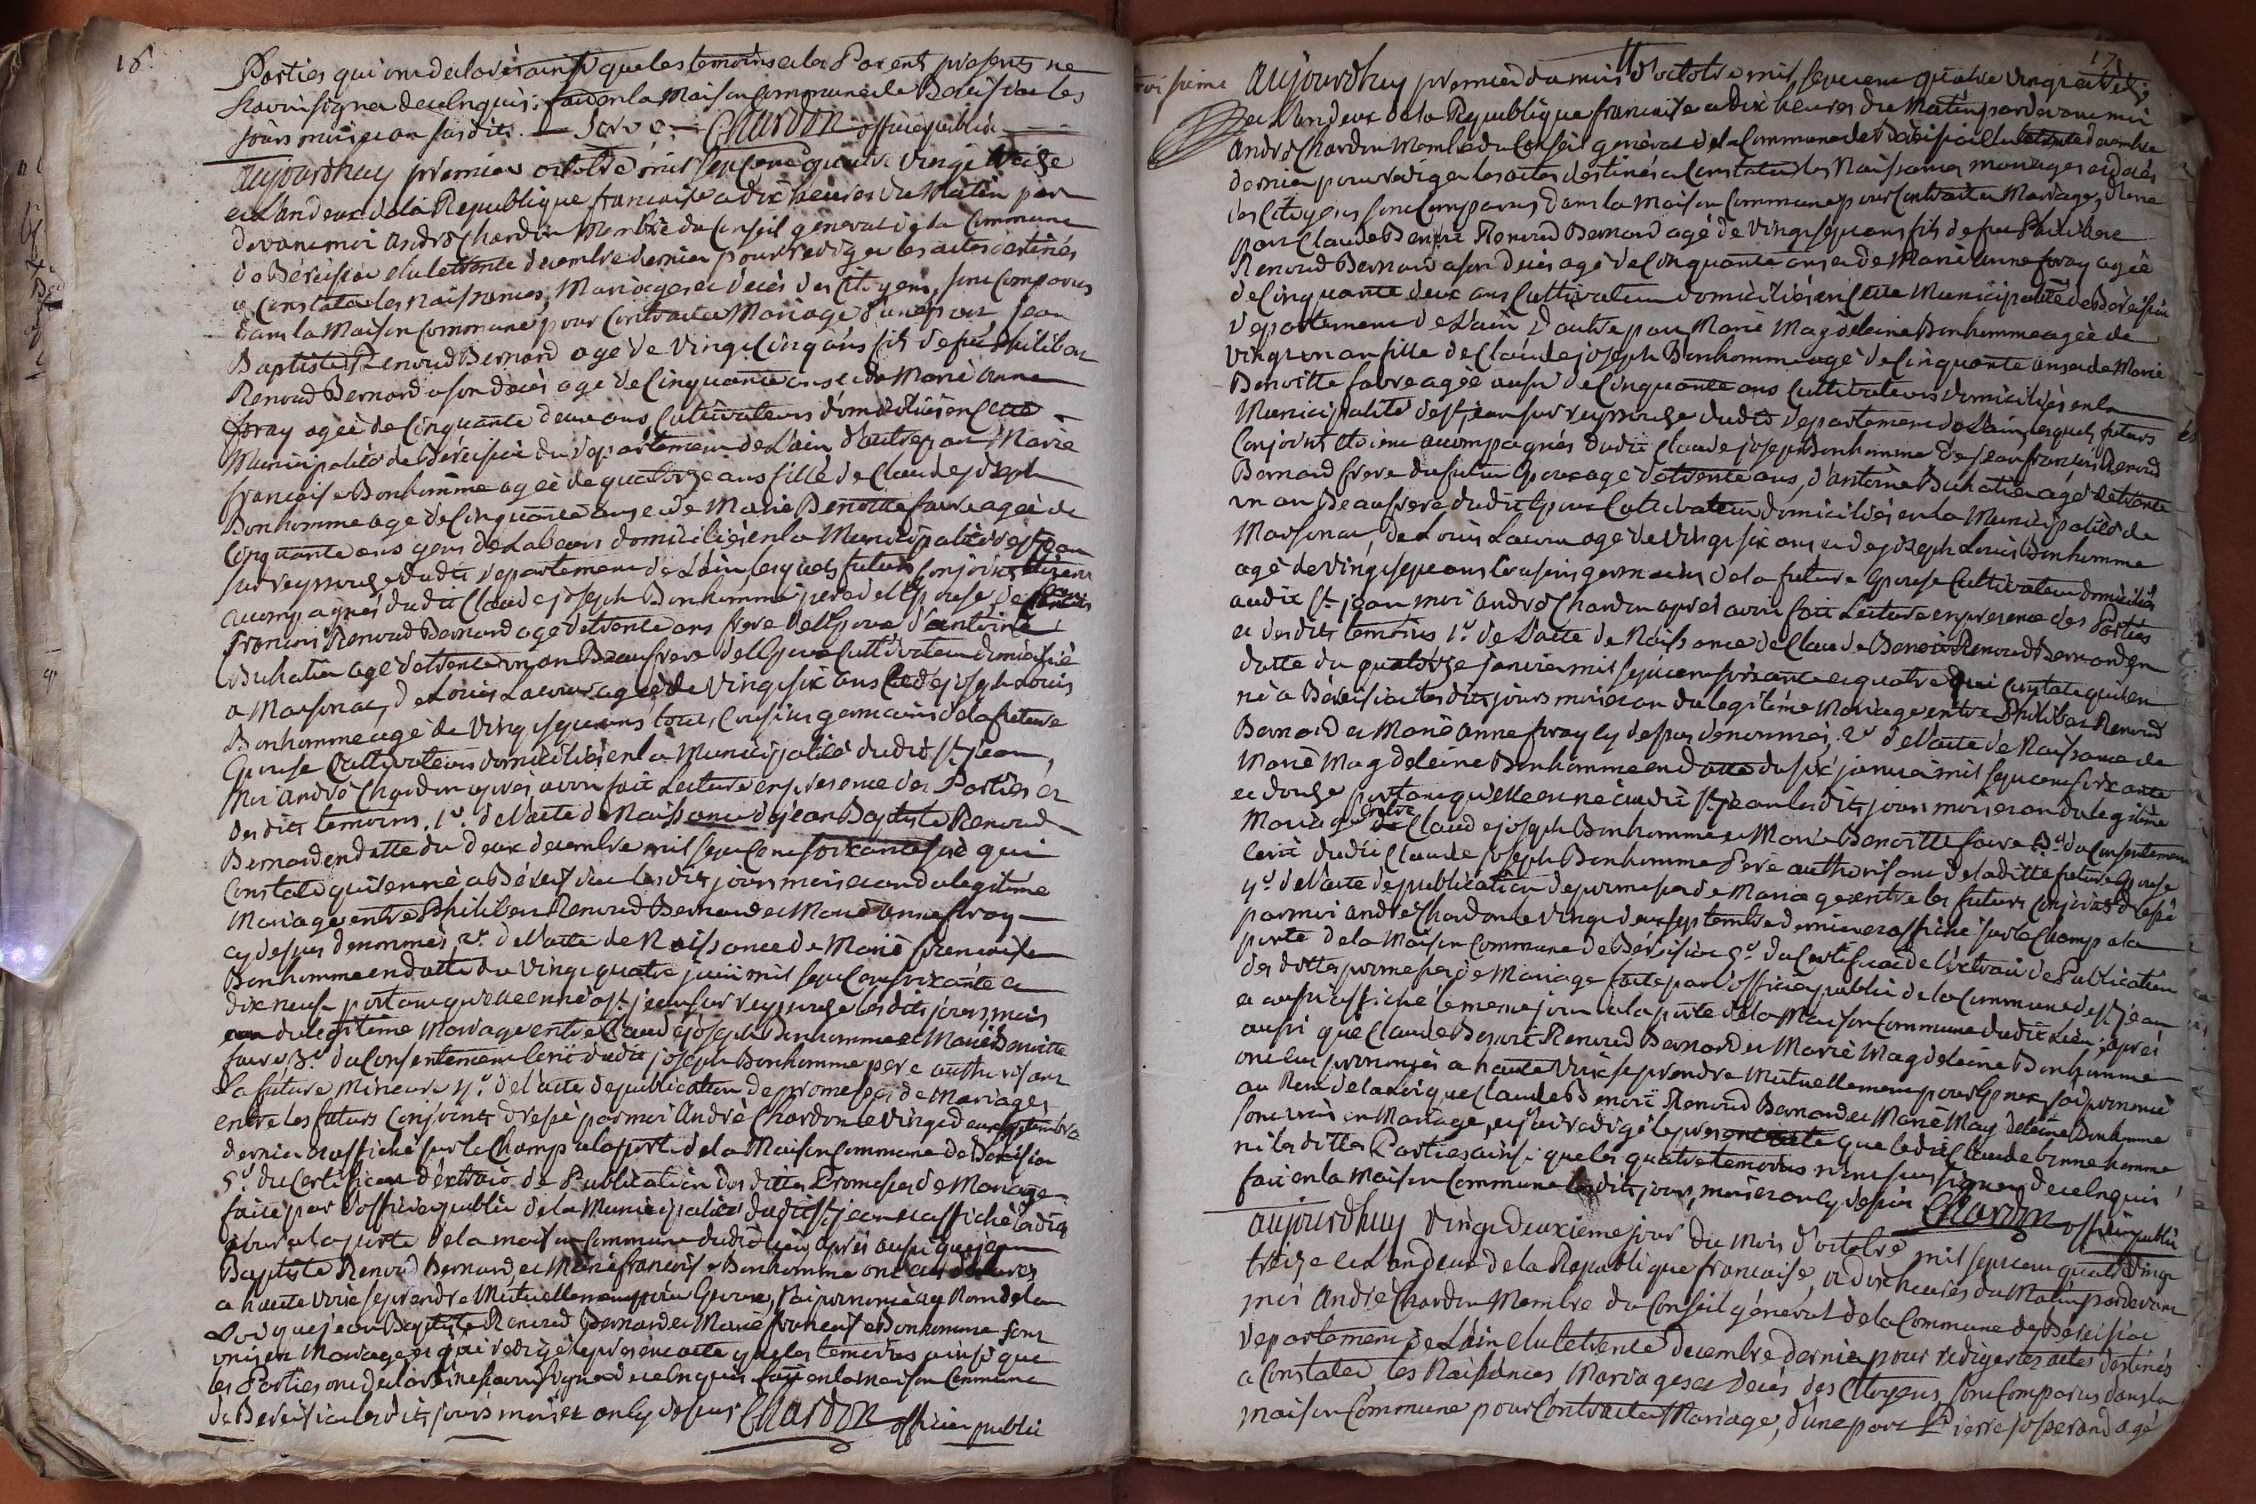 16.
Parties qui ont declarés ainsi que les temoins et les Parents presents ne
sçavoir signer de ce enquis. fait en la Maison Commune de Béréisiat les
jours mois et an susdits. Chardon officier public
aujourdhuy premier octobre mil sept cent quatre vingt treize
et L'an deux de la Republique francaise a dix heures du Matin par
devant moi andré Chardon Membre du Conseil general de la Commune
de Béréisiat elu le trente decembre dernier pour rediger les actes destinés
a Constater les naissances, Mariages et décés des Citoyens, sont Comparus
dans la Maison Commune pour Contracter Mariage d'une part jean
Baptiste Renoud Bernard agé de vingt Cinq ans fils de feu Philibert
Renoud Bernard a son décès agé de Cinquante ans et de Marie anne
foray agée de Cinquante deux ans Cultivateurs domiciliés en Cette
Municipalité de Béréisiat du departement de L'ain d'autre part Marie
francoise Bonhomme agée de quatorze ans fille de Claude joseph
Bonhomme agé de Cinquante ans et de Marie Benoitte favre agée de
Cinquante ans gens de Labeurs domiciliés en la Municipalité de st jean
sur reyssouze dudit departement de L'ain, lesquels futurs Conjoints etoient
accompagnés dudit Claude joseph Bonhomme pere de l'Epouse, de jean
francois Renoud Bernard agé de trente ans frere de l'Epoux d'antoine
Buhatier agé de trente un an Beaufrere de l'Epoux Cultivateur domicilié
a Marsonat, de Louis Lacour agé de vingt six ans et de joseph Louis
Bonhomme agé de vingt sept ans tous Cousins germains de la future
Epouse Cultivateurs domiciliés en la Municipalité dudit st jean,
Moi andré Chardon aprés avoir fait Lecture en presence des Parties et
des dits temoins. 1º. de l'acte de Naissance de jean Baptiste Renoud
Bernard en datte du deux decembre mil sept Cent soixante six qui
Constate qu'il en né a Béréisiat les dits jours mois et an du legitime
Mariage entre Philibert Renoud Bernard et Marie anne foray
cy dessus denommés, 2º. de l'acte de Naissance de Marie francoise
Bonhomme en datte du vingt quatre juin mil sept Cent soixante et
dix neuf portant qu'elle en né a st jean sur reyssouze les dits jours, mois
an du legitime Mariage entre Claude joseph Bonhomme et Marie Benoitte
favre, 3º. du Consentement ecrit dudit joseph Bonhomme pere authorisant
La future Mineure 4º. de l'acte de publication de promesses de Mariages
entre les futurs Conjoints dressé par moi André Chardon le vingt deux septembre
dernier et affiché sur le Champ a la porte de la Maison Commune de Béréisiat
5º. du Certificat d'extrait de Publication des dittes Promesses de Mariage
faite par l'officier public de la Municipalité dudit st jean et affiché le dit
jour a la porte de la maison Commune dudit lieu, après aussi que jean
Baptiste Renoud Bernard, et Marie francoise Bonhomme ont eu declarés
a haute voix se prendre Mutuellement pour Epoux, j'ai prononcé au Nom de la
Loi que jean Baptiste Renoud Bernard et Marie francoise Bonhomme sont
unis en Mariage et j'ai redigé le present acte que les temoins ainsi que
les Parties ont declarés ne sçavoir signer de ce enquis fait en la maison Commune
de Béréisiat les dits jours mois et an cy dessus Chardon officier public
17.
troisieme aujourdhuy premier du mois d'octobre mil sept cent quatre vingt treize
et L'an deux de la Republique francaise a dix heures du Matin pardevant moi
andré Chardon Membre du Conseil general de la Commune de Béréisiat elu le trente decembre
dernier pour rediger les actes destinés a Constater les Naissances mariages et décés
des Citoyens sont Comparus dans la Maison Commune pour Contracter Mariage, d'une
part Claude Benoit Renoud Bernard agé de vingt sept ans fils de feu Philibert
Renoud Bernard a son décès agé de Cinquante ans et de Marie anne foray agée
de Cinquante deux ans Cultivateurs domiciliés en Cette Municipalité de Béréisiat
departement de L'ain, d'autre part Marie Magdeleine Bonhomme agée de
vingt un an fille de Claude joseph Bonhomme agé de Cinquante ans et de Marie
Benoitte favre agée aussi de Cinquante ans Cultivateurs domiciliés en la
Municipalité de st jean sur reyssouze dudit departement de L'ain, lesquels futurs
Conjoints etoient accompagnés dudit Claude joseph Bonhomme de jean francois Renoud
Bernard frere du futur Epoux agé de trente ans, d'antoine Buhatier agé de trente
un an Beaufrere dudit Epoux Cultivateurs domiciliés en la Municipalité de
Marsonat, de Louis Lacour agé de vingt six ans et de joseph Louis Bonhomme
agé de vingt sept ans Cousins germains de la future Epouse Cultivateurs domiciliés
audit st jean moi andré Chardon aprés avoir fait Lecture en presence des Parties
et des dits temoins 1º. de L'acte de Naissance de Claude Benoit Renoud Bernard en
datte du quatorze janvier mil sept cent soixante et quatre qui Constate qu'il en
né a Béréisiat les dits jours mois et an du legitime Mariage entre Philibert Renoud
Bernard et Marie anne foray cy dessus dénommés, 2º. de l'acte de Naissance de
Marie Magdeleine Bonhomme en datte du six janvier mil sept cent soixante
et douze portant qu'elle en né audit st jean les dits jours mois et an du legitime
Mariage entre Claude joseph Bonhomme et Marie Benoitte favre 3º. du Consentement
ecrit dudit Claude joseph Bonhomme Pere authorisant de la ditte future Epouse
4º. de l'acte de publication de promesses de Mariage entre les futurs Conjoints dressé
par moi andré Chardon le vingt deux septembre dernier et affiché sur le Champ a la
porte de la Maison Commune de Béréisiat 5º. du Certificat de l'extrait de Publication
des dittes promesses de Mariage faite par l'officier public de la Commune de st jean
et aussi affiché le meme jour a la porte de la Maison Commune dudit Lieu; aprés
aussi que Claude Benoit Renoud Bernard et Marie Magdeleine Bonhomme
ont eus prononcés a haute voix se prendre Mutuellement pour Epoux, j'ai prononcé
au Nom de la Loi que Claude Benoit Renoud Bernard et Marie Magdeleine Bonhomme
sont unis en Mariage, et j'ai redigé le present acte que ledit Claude bonne homme
ni les dittes Parties ainsi que les quatre temoins n'ont sus signer de ce enquis
fait en la Maison Commune les dits jours, mois et an cy dessus Chardon officier public
aujourdhuy vingt deuxieme jour du Mois d'octobre mil sept cent quatre vingt
treize et L'an deux de la Republique francaise, a dix heures du Matin pardevant
moi André Chardon Membre du Conseil général de la Commune de Béréisiat
departement de L'ain elu le trente decembre dernier pour rediger les actes destinés
a Constater les Naissances Mariages et Décés des Citoyens, sont Comparus dans la
maison Commune pour Contracter Mariage, d'une part Pierre josserand agé